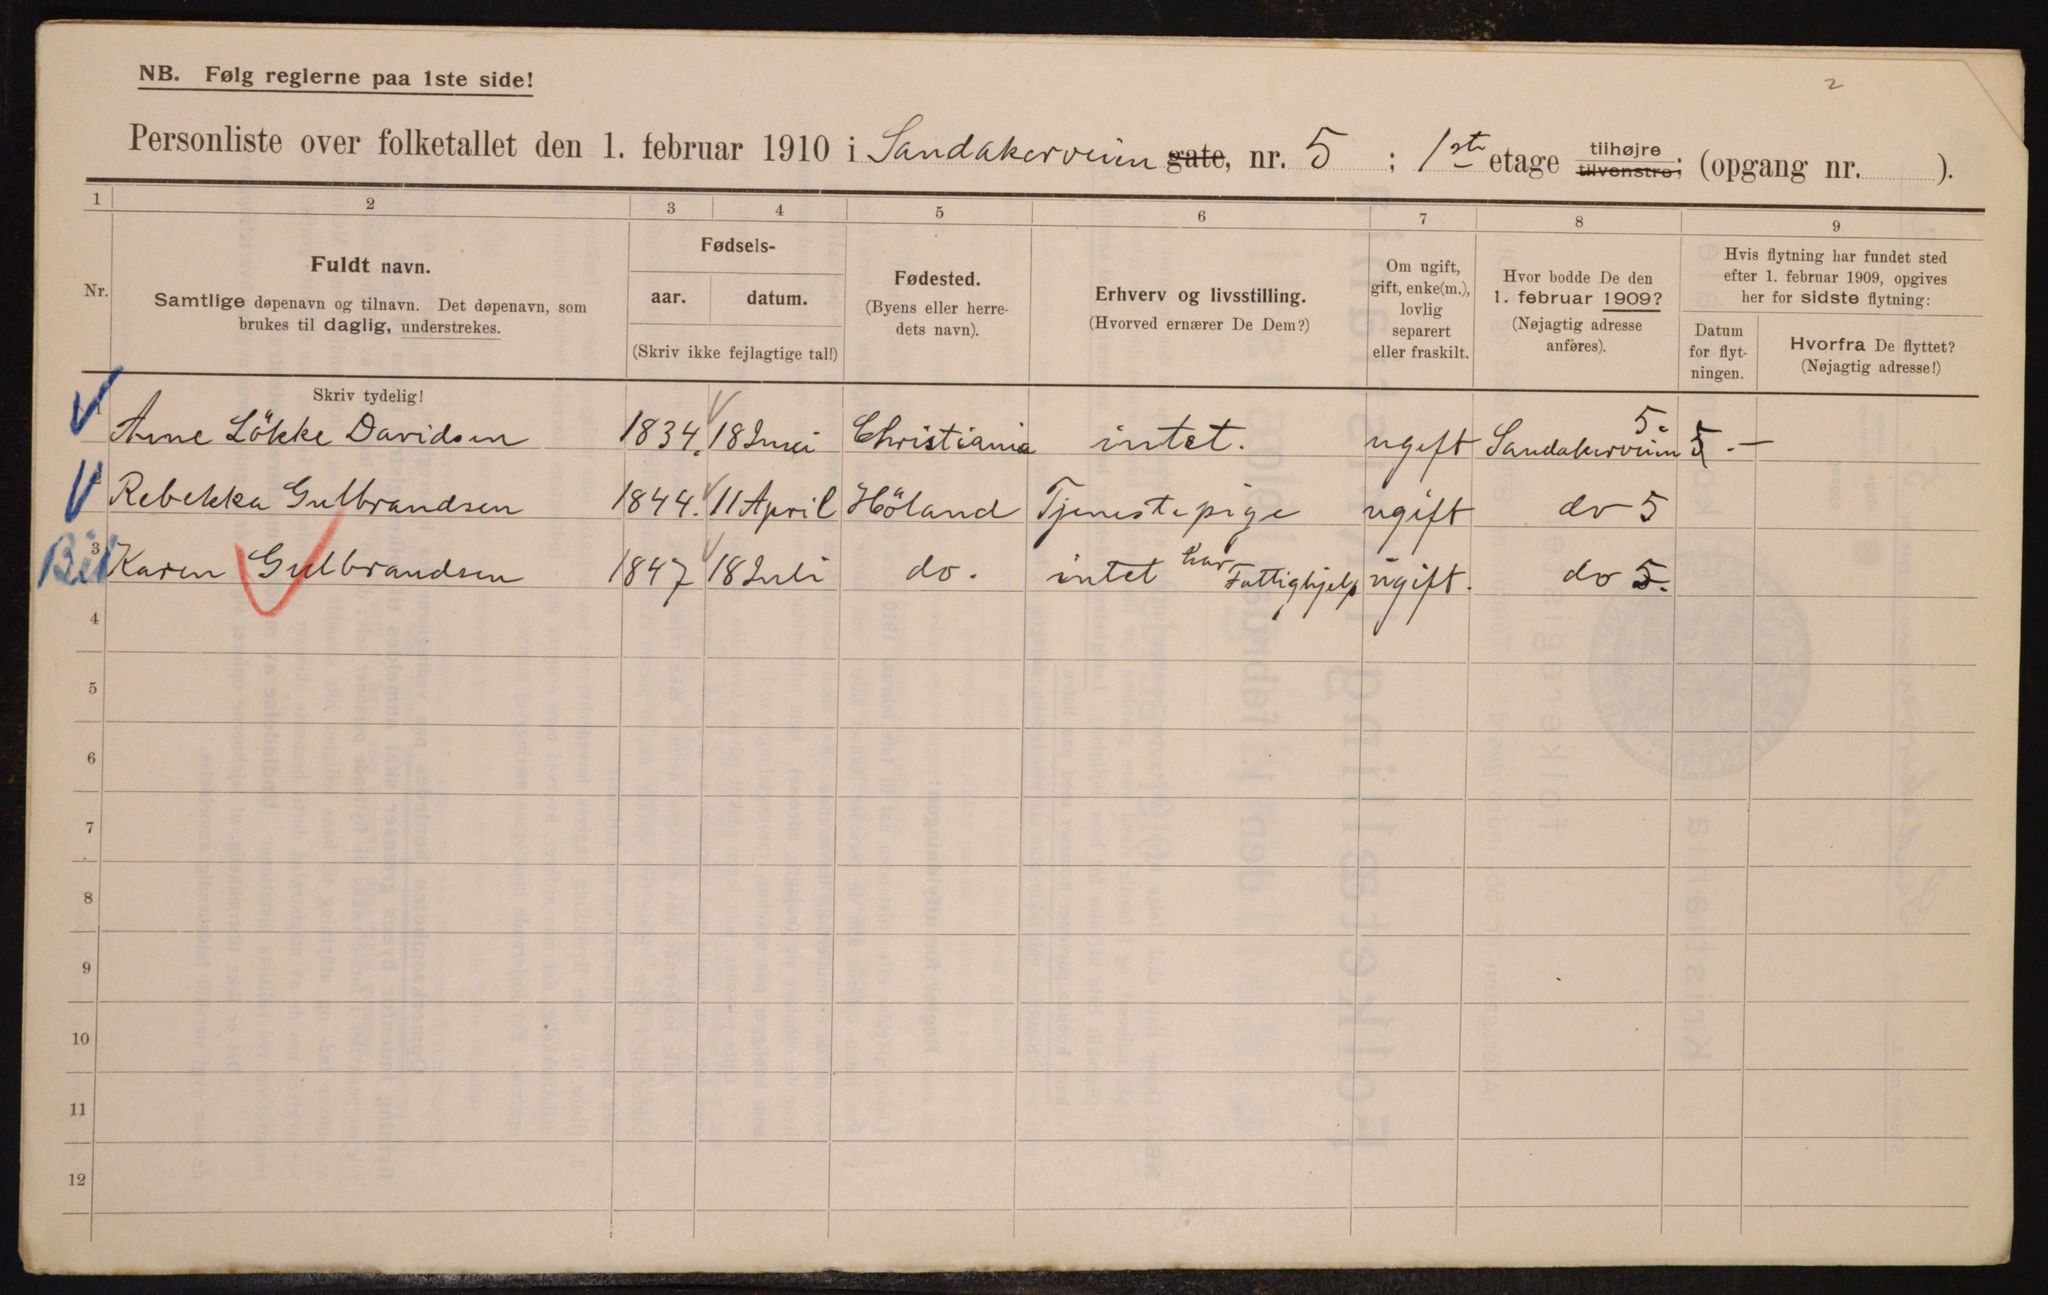 2
NB. Følg reglerne paa 1ste side!
Personliste over folketallet den 1. februar 1910 i Sandakerveien gate, nr. 5 ; 1ste etage tilhøjre tilvenstre; (opgang nr. ).
1 2 3 4 5 6 7 8 9
Nr.
Fuldt navn.
Samtlige døpenavn og tilnavn. Det døpenavn, som
brukes til daglig, understrekes.
Fødsels-
aar. datum.
(Skriv ikke fejlagtige tal!)
Fødested.
(Byens eller herre-
dets navn).
Erhverv og livsstilling.
(Hvorved ernærer De Dem?)
Om ugift,
gift, enke(m.),
lovlig
separert
eller fraskilt.
Hvor bodde De den
1. februar 1909?
(Nøjagtig adresse
anføres).
Hvis flytning har fundet sted
efter 1. februar 1909, opgives
her for sidste flytning:
Datum
for flyt-
ningen.
Hvorfra De flyttet?
(Nøjagtig adresse!)
Skriv tydelig!
Anne Lökke Davidsen 1834. 18 Juni Christiania intet. ugift Sandakerveien 5. 5 . —
Rebekka Gulbrandsen 1844. 11 April Höland Tjenestepige ugift do 5
Bil 3 Karen Gulbrandsen 1847 18 Juli do. intet har Fattighjelp ugift. do 5.
4
5
6
7
8
9
10
11
12